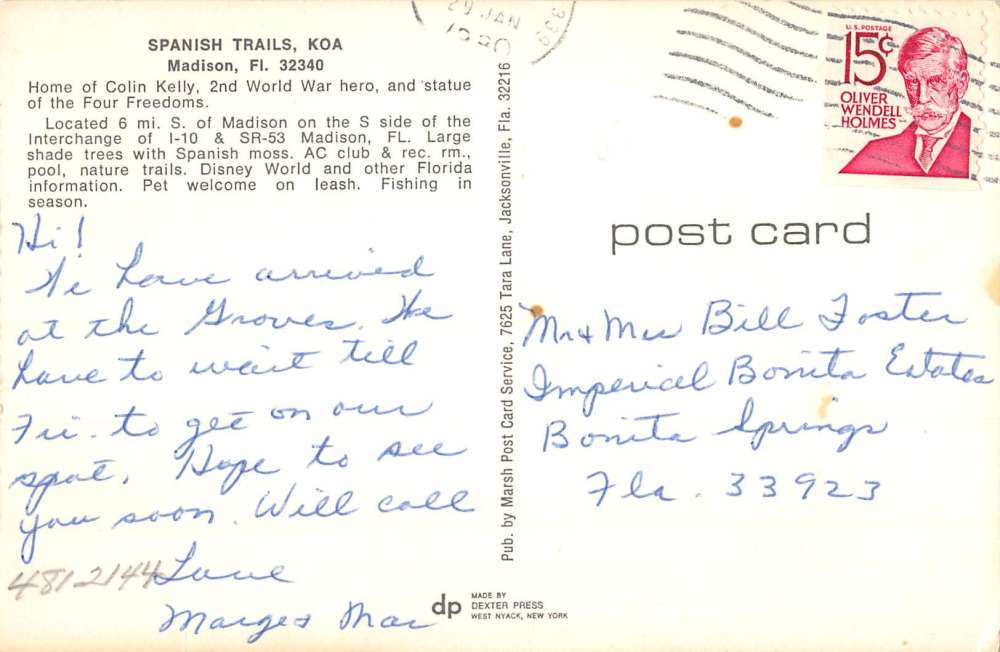 SPANISH TRAILS, KOA
Madison, Fl. 32340
Home of Colin Kelly, 2nd World War hero, and statue
of the Four Freedoms.
Located 6 mi. S. of Madison on the S side of the
Interchange of I-10 & SR-53 Madison, FL. Large
shade trees with Spanish moss. AC club & rec. rm.,
pool, nature trails. Disney World and other Florida
information. Pet welcome on leash. Fishing in
season.
Hi!
We have arrived
at the Groves. We
have to wait till
Fri. to get on our
spot. Hope to see
you soon. Will call
Love
Marge &
4812144
Pub. by Marsh Post Card Service, 7625 Tara Lane, Jacksonville, Fla. 32216
dp
MADE BY
DEXTER PRESS
WEST NYACK, NEW YORK
29 JAN
339
U.S. POSTAGE
15¢
OLIVER
WENDELL
HOLMES
post card
Mr & Mrs Bill Foster
Imperial Bonita Estates
Bonita Springs
Fla. 33923